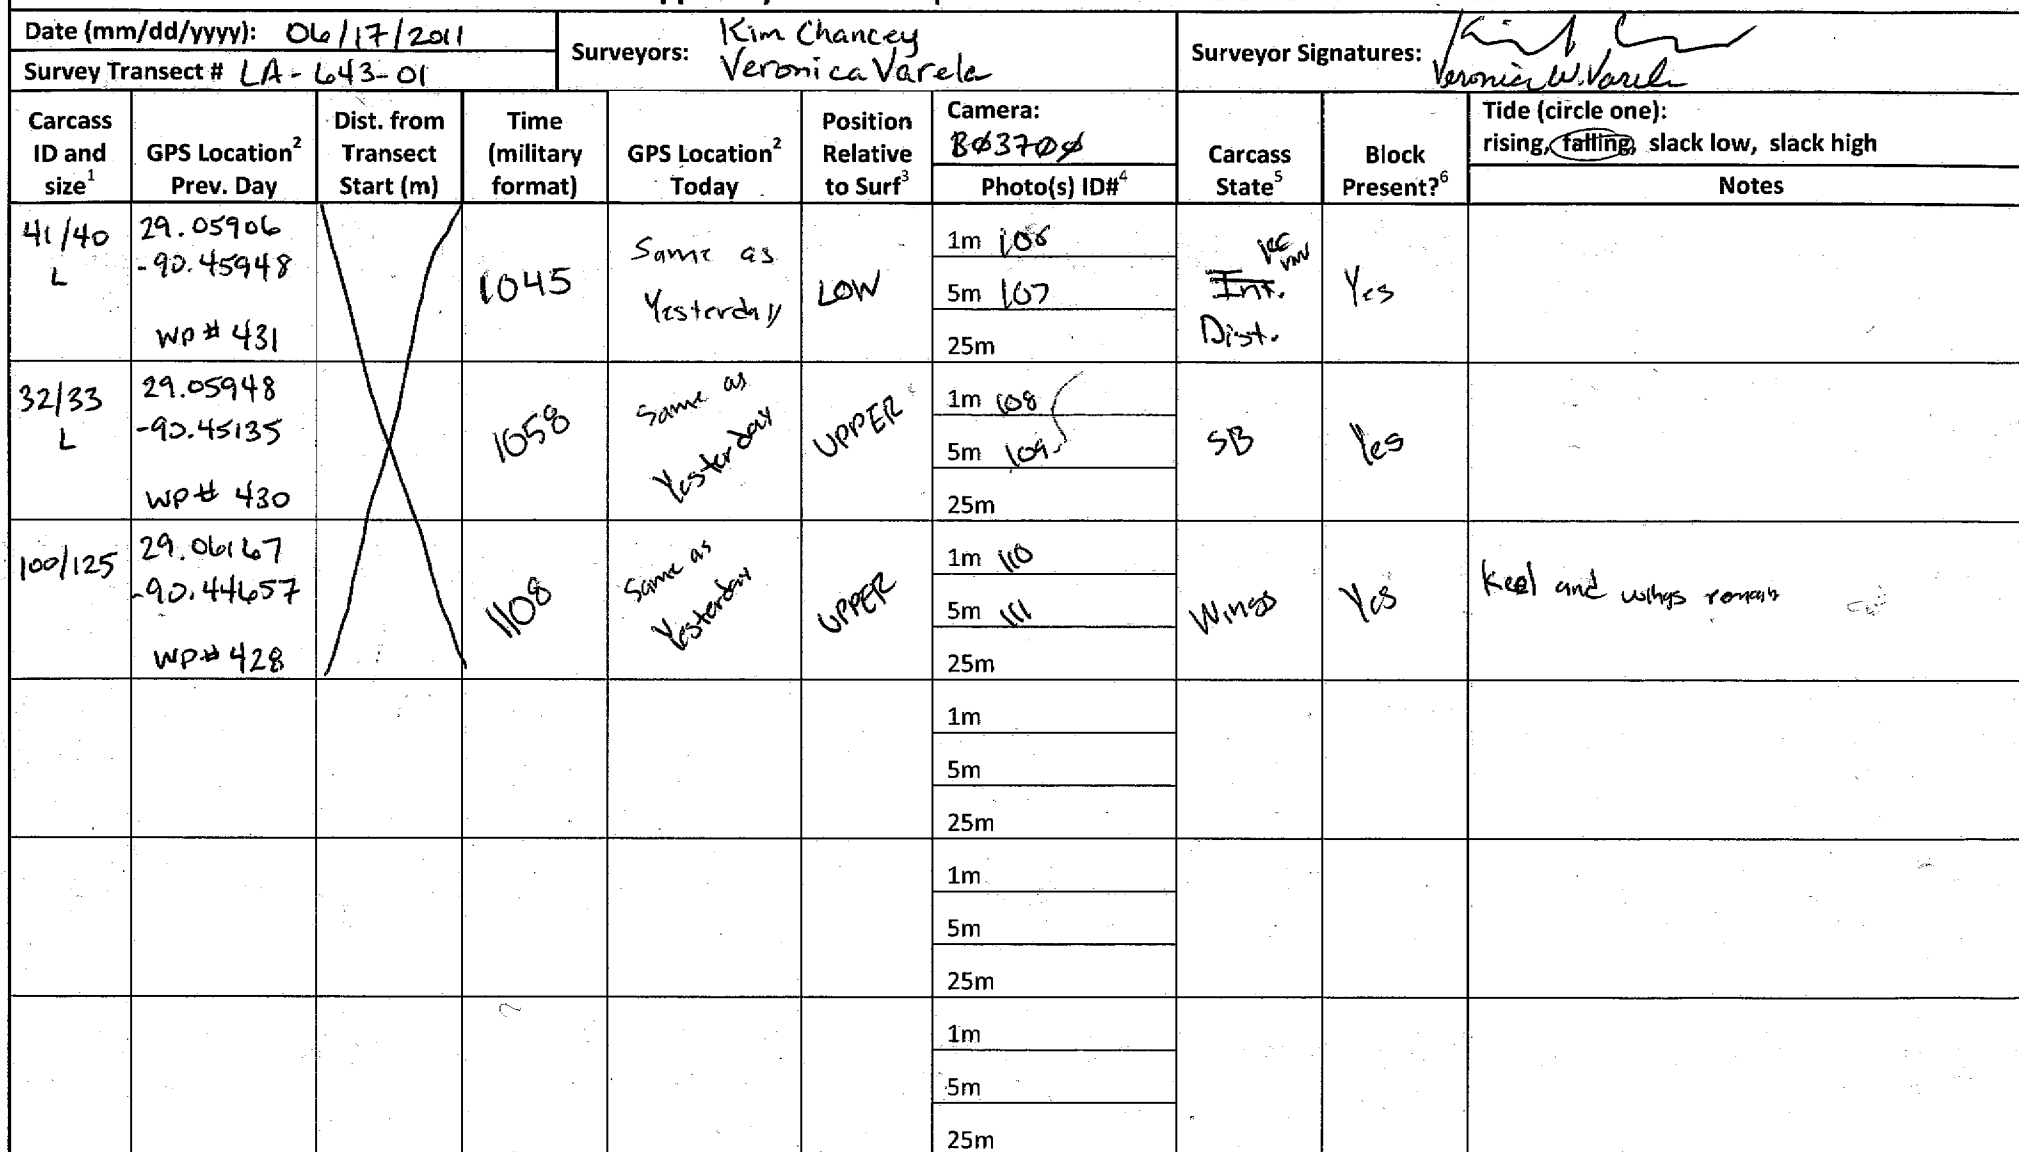 Date (mm/dd/yyyy): 06/17/2011
Survey Transect # LA-643-01
Surveyors: Kim Chancey
Veronica Varela
Surveyor Signatures:
Veronica W. Varela
Carcass ID and size1
GPS Location2 Prev. Day
Dist. from Transect Start (m)
Time (military format)
GPS Location2 Today
Position Relative to Surf3
Camera:
BØ37ØØ
Photo(s) ID#4
Carcass State5
Block Present?6
Tide (circle one):
rising, falling, slack low, slack high
Notes
41/40
L
29.05906
-90.45948
WP# 431
1045
Same as
Yesterday
LOW
1m 106
5m 107
25m
Int.
Dist.
Yes
32/33
L
29.05948
-90.45135
WP# 430
1058
Same as
Yesterday
UPPER
1m 108
5m 109
25m
SB
Yes
100/125
29.06167
-90.44657
WP# 428
1108
Same as
Yesterday
UPPER
1m 110
5m 111
25m
Wings
Yes
Keel and wings remain
1m
5m
25m
1m
5m
25m
1m
5m
25m